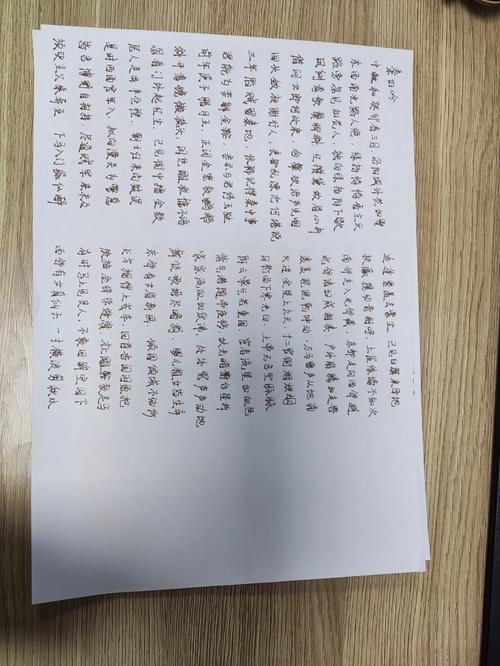 秦妇吟
中和癸卯春三月，洛阳城外花如雪
东西南北路人绝，绿杨悄悄香尘灭
路旁忽见如花人，独向绿杨阴下歇
凤侧鸾欹鬓脚斜，红攒黛敛眉心折
借问女郎何处来，含颦欲语声先咽
回头敛袂谢行人，丧乱漂沦何堪说
三年陷贼留秦地，依稀记得秦中事
君能为妾解金鞍，妾亦与君停玉趾
前年庚子腊月五，正闭金笼教鹦鹉
斜开鸾镜懒梳头，闲凭雕栏慵不语
忽看门外起红尘，已见街中擂金鼓
居人走出半仓惶，朝士归来尚疑误
是时西面官军入，拟向潼关为警急
皆言博野自相持，尽道贼军来未及
须臾主父乘奔至，下马入门痴似醉
适逢紫盖去蒙尘，已见白旗来匝地
扶羸携幼竞相呼，上屋缘墙不知次
南邻走入北邻藏，东邻走向西邻避
北邻诸妇咸相凑，户外崩腾如走兽
轰轰混混乾坤动，万马雷声从地涌
火迸金星上九天，十二官街烟烘烔
日轮西下寒光白，上帝无言空脉脉
阴云晕气若重围，宦者流星如血色
紫气潜随帝座移，妖光暗射台星拆
家家流血如泉沸，处处冤声声动地
舞伎歌姬尽暗损，婴儿稚女皆生弃
东邻有女眉新画，倾国倾城不知价
长戈拥得上戎车，回首香闺泪盈把
旋抽金线学缝旗，才上雕鞍教走马
有时马上见良人，不敢回眸空泪下
西邻有女真仙子，一寸横波剪秋水